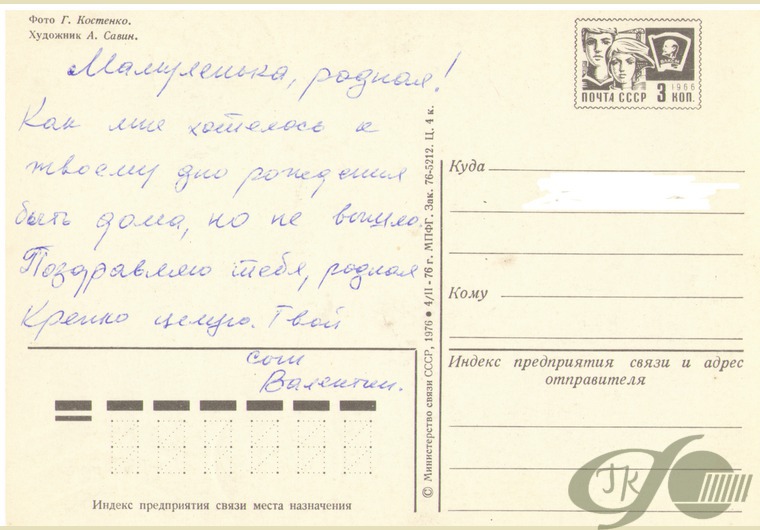 Фото Г. Костенко.
Художник А. Савин.
Мамуленька, родная!
Как мне хотелось к
твоему дню рождения
быть дома, но не вышло.
Поздравляю тебя, родная
Крепко целую. Твой
сын
Валентин.
Индекс предприятия связи места назначения
© Министерство связи СССР, 1976 ● 4/II-76 г. МПФГ. Зак. 76-5212. Ц. 4 к.
1966
ПОЧТА СССР 3 КОП.
Куда
Кому
Индекс предприятия связи и адрес
отправителя
ГК